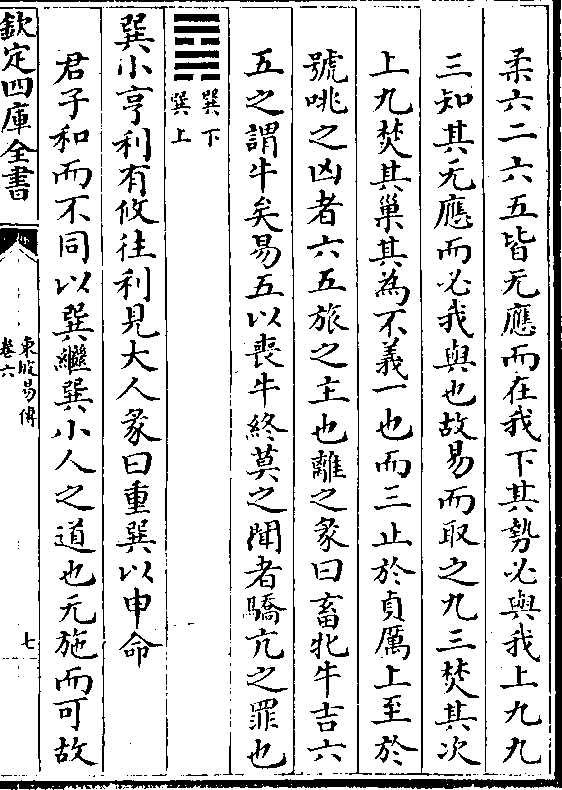 柔六二六五皆无應而在我下其勢必與我上九九
三知其无應而必我與也故易而取之九三焚其次
上九焚其巢其為不義一也而三止於貞厲上至於
號咷之凶者六五旅之主也離之彖曰畜牝牛吉六
五之謂牛矣易五以喪牛終莫之聞者驕亢之罪也
䷸巽下巽上
巽小亨利有攸往利見大人彖曰重巽以申命
君子和而不同以巽繼巽小人之道也无施而可故
欽定四庫全書
東坡易傳
卷六
七